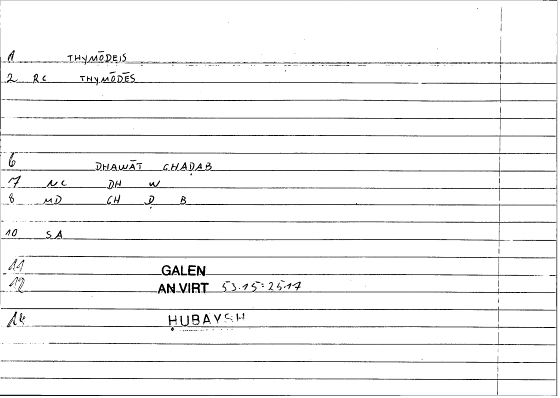 1 THYMŌDEIS
2 RC THYMŌDĒS
6 DHAWĀT GHAḌAB
7 NC DH W
8 MD GH Ḍ B
10 SA
11 GALEN
12 AN.VIRT 53.15:25.17
14 ḤUBAYSH